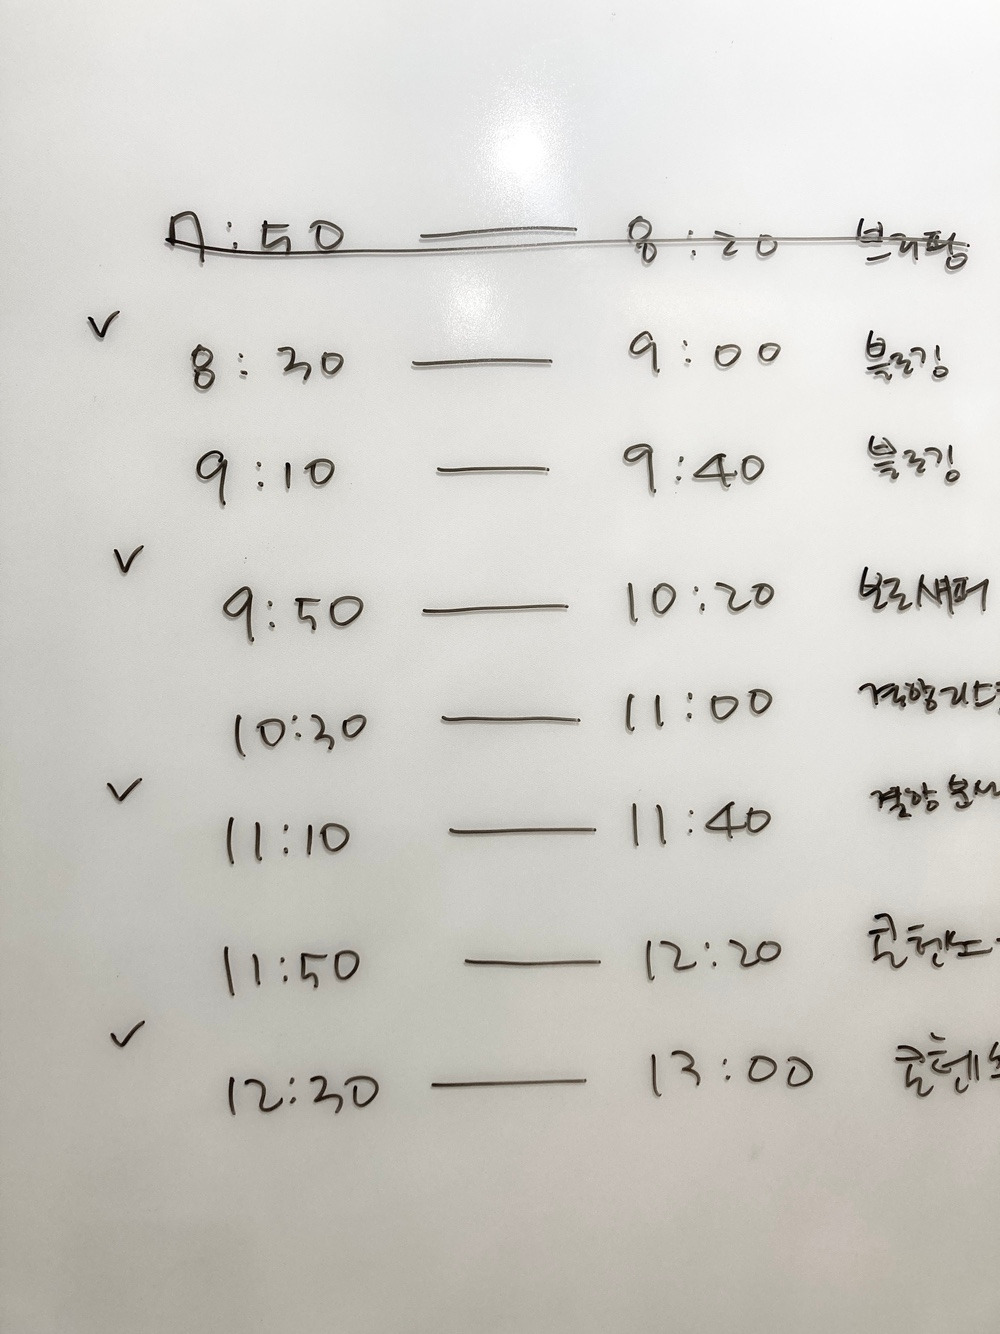 7:50 — 8:20 브리핑
✓ 8:30 — 9:00 블로깅
9:10 — 9:40 블로깅
✓ 9:50 — 10:20 브로셔퍼
10:30 — 11:00
✓ 11:10 — 11:40
11:50 — 12:20
✓ 12:30 — 13:00